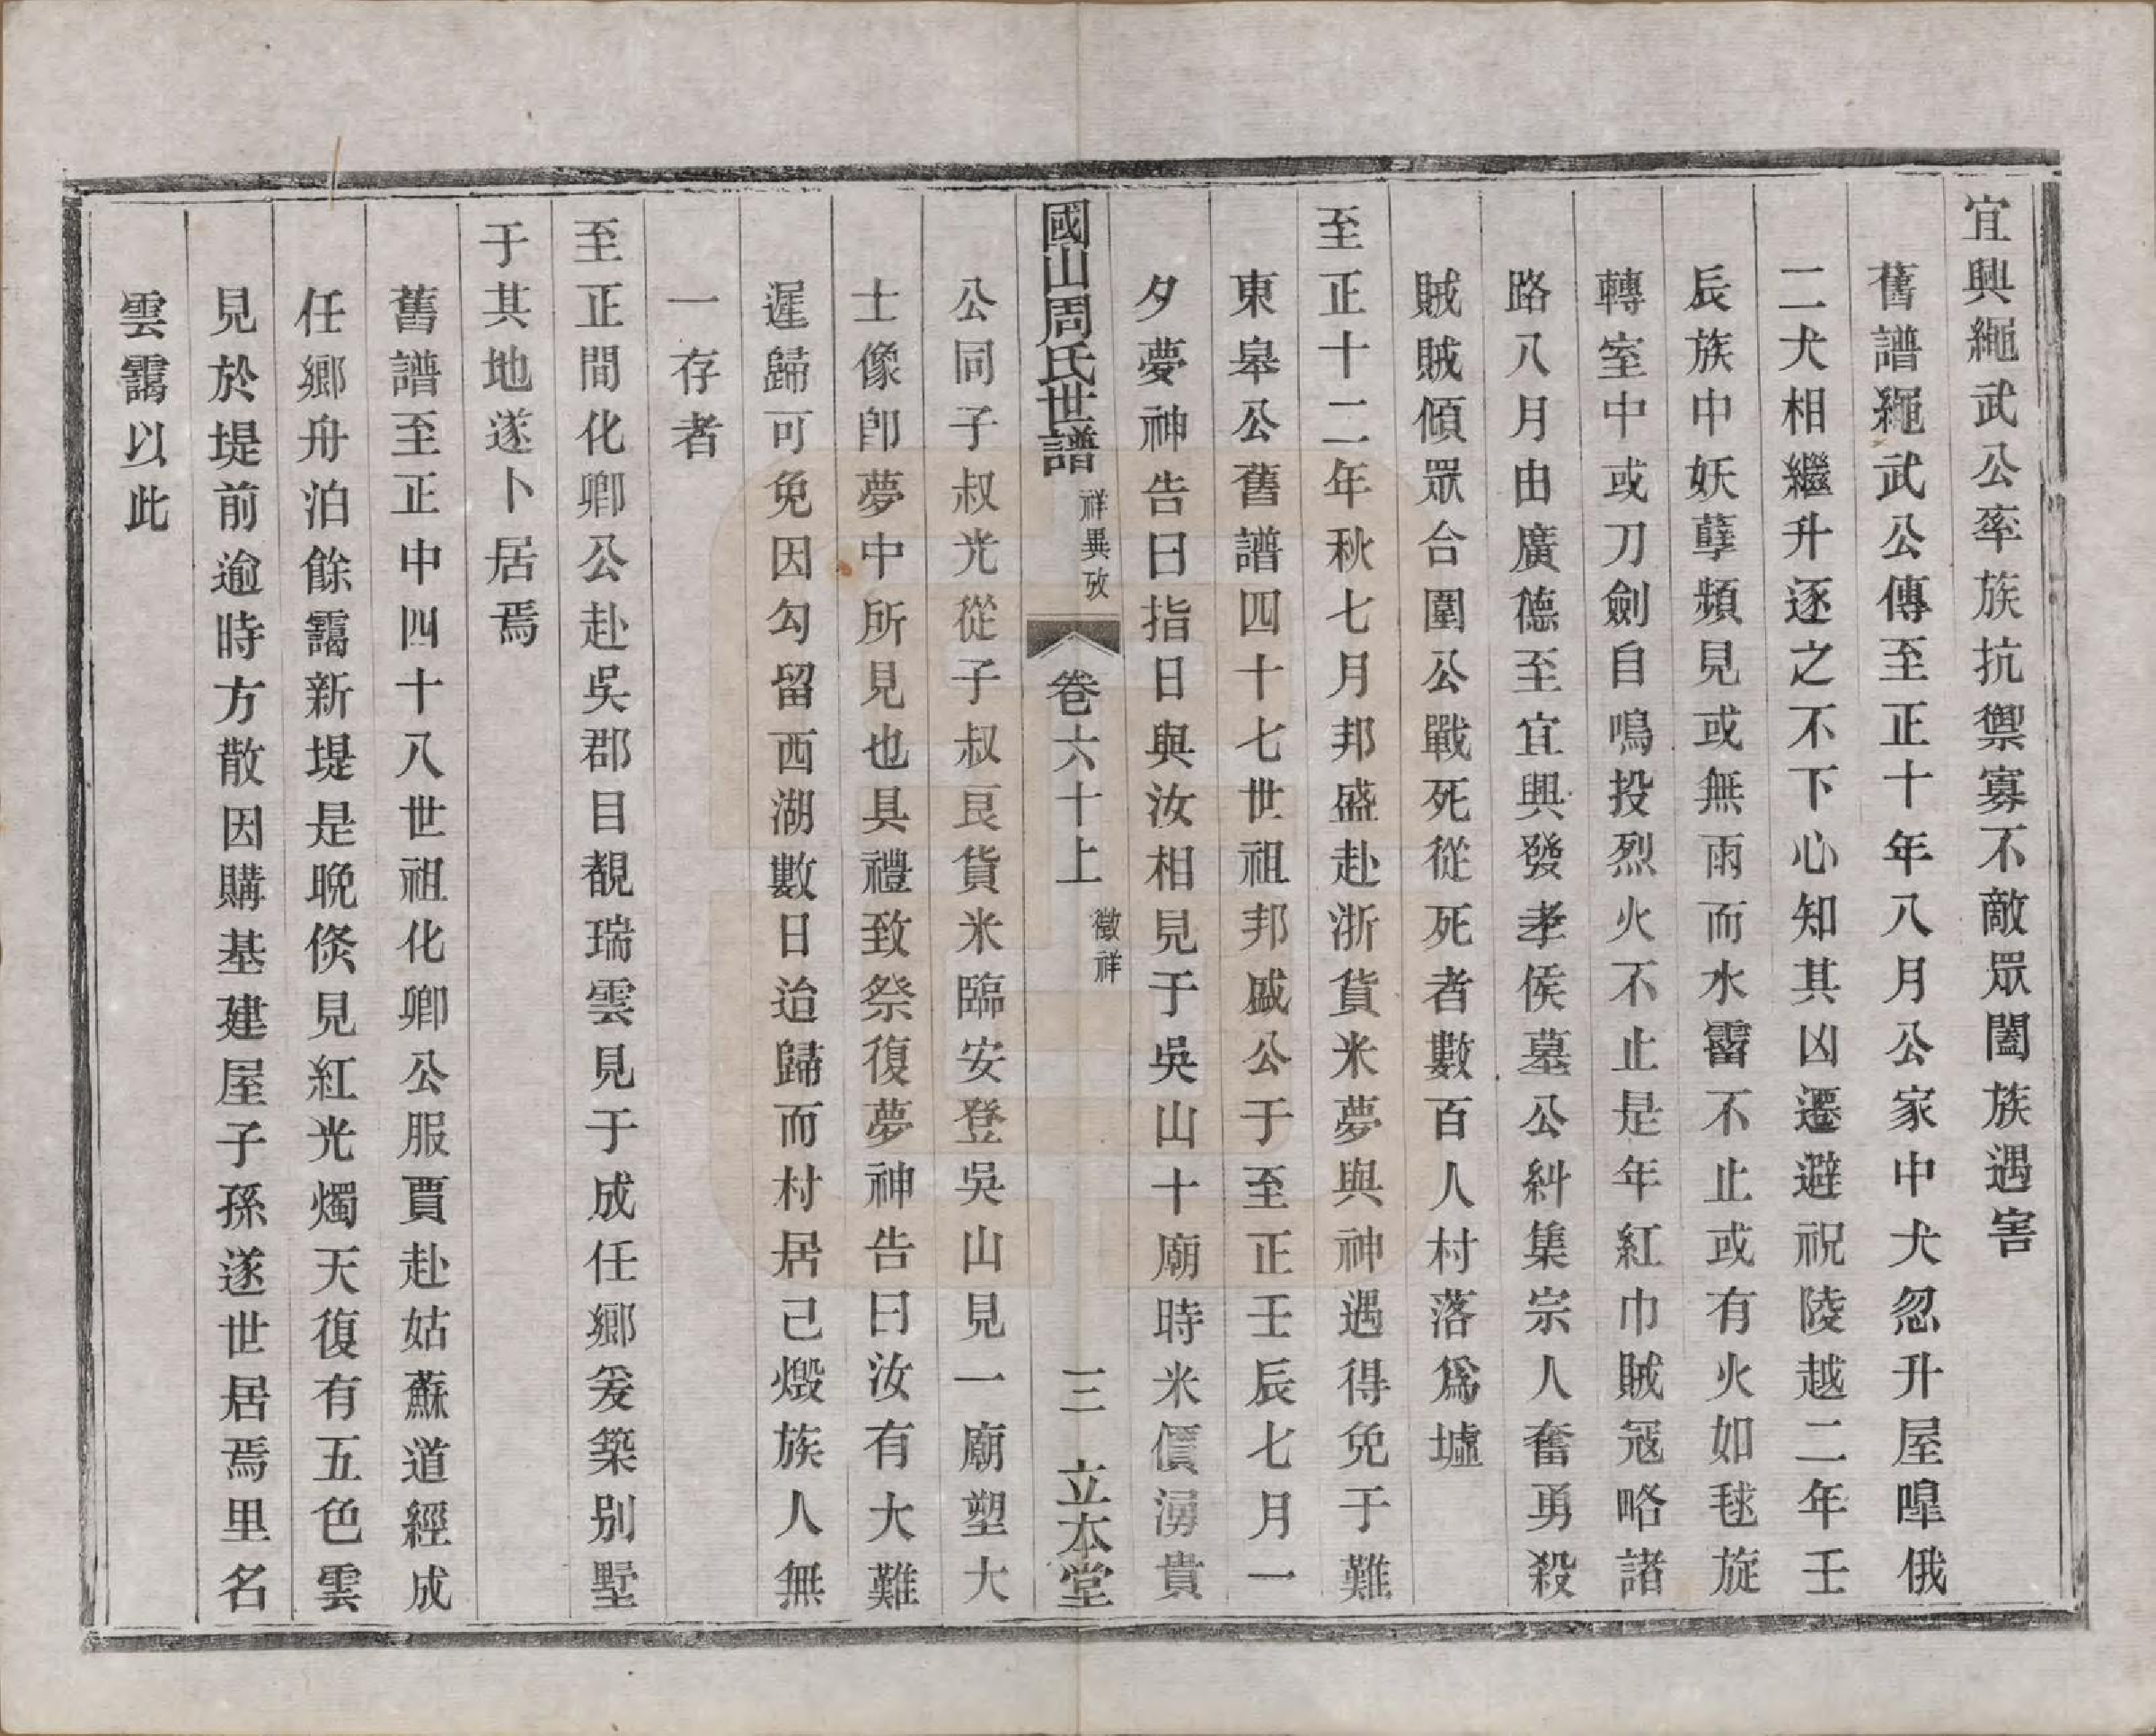 宜興繩武公率族抗禦寡不敵眾闔族遇害
舊譜繩武公傳至正十年八月公家中犬忽升屋嘷俄
二犬相繼升逐之不下心知其凶遷避祝陵越二年壬
辰族中妖孽頻見或無雨而水霤不止或有火如毬旋
轉室中或刀劍自鳴投烈火不止是年紅巾賊冦略諸
路八月由廣德至宜興發孝侯墓公糾集宗人奮勇殺
賊賊傾眾合圍公戰死從死者數百人村落爲墟
至正十二年秋七月邦盛赴浙貨米夢與神遇得免于難
東皋公舊譜四十七世祖邦盛公于至正壬辰七月一
夕夢神告曰指日與汝相見于吳山十廟時米價湧貴
國山周氏世譜 祥異攷 卷六十上 徵祥 三 立本堂
公同子叔光從子叔良貨米臨安登吳山見一廟塑大
士像卽夢中所見也具禮致祭復夢神告曰汝有大難
遲歸可免因勾留西湖數日迨歸而村居已燬族人無
一存者
至正間化卿公赴吳郡目覩瑞雲見于成任鄉爰築別墅
于其地遂卜居焉
舊譜至正中四十八世祖化卿公服賈赴姑蘇道經成
任鄉舟泊餘靄新堤是晚倐見紅光燭天復有五色雲
見於堤前逾時方散因購基建屋子孫遂世居焉里名
雲靄以此